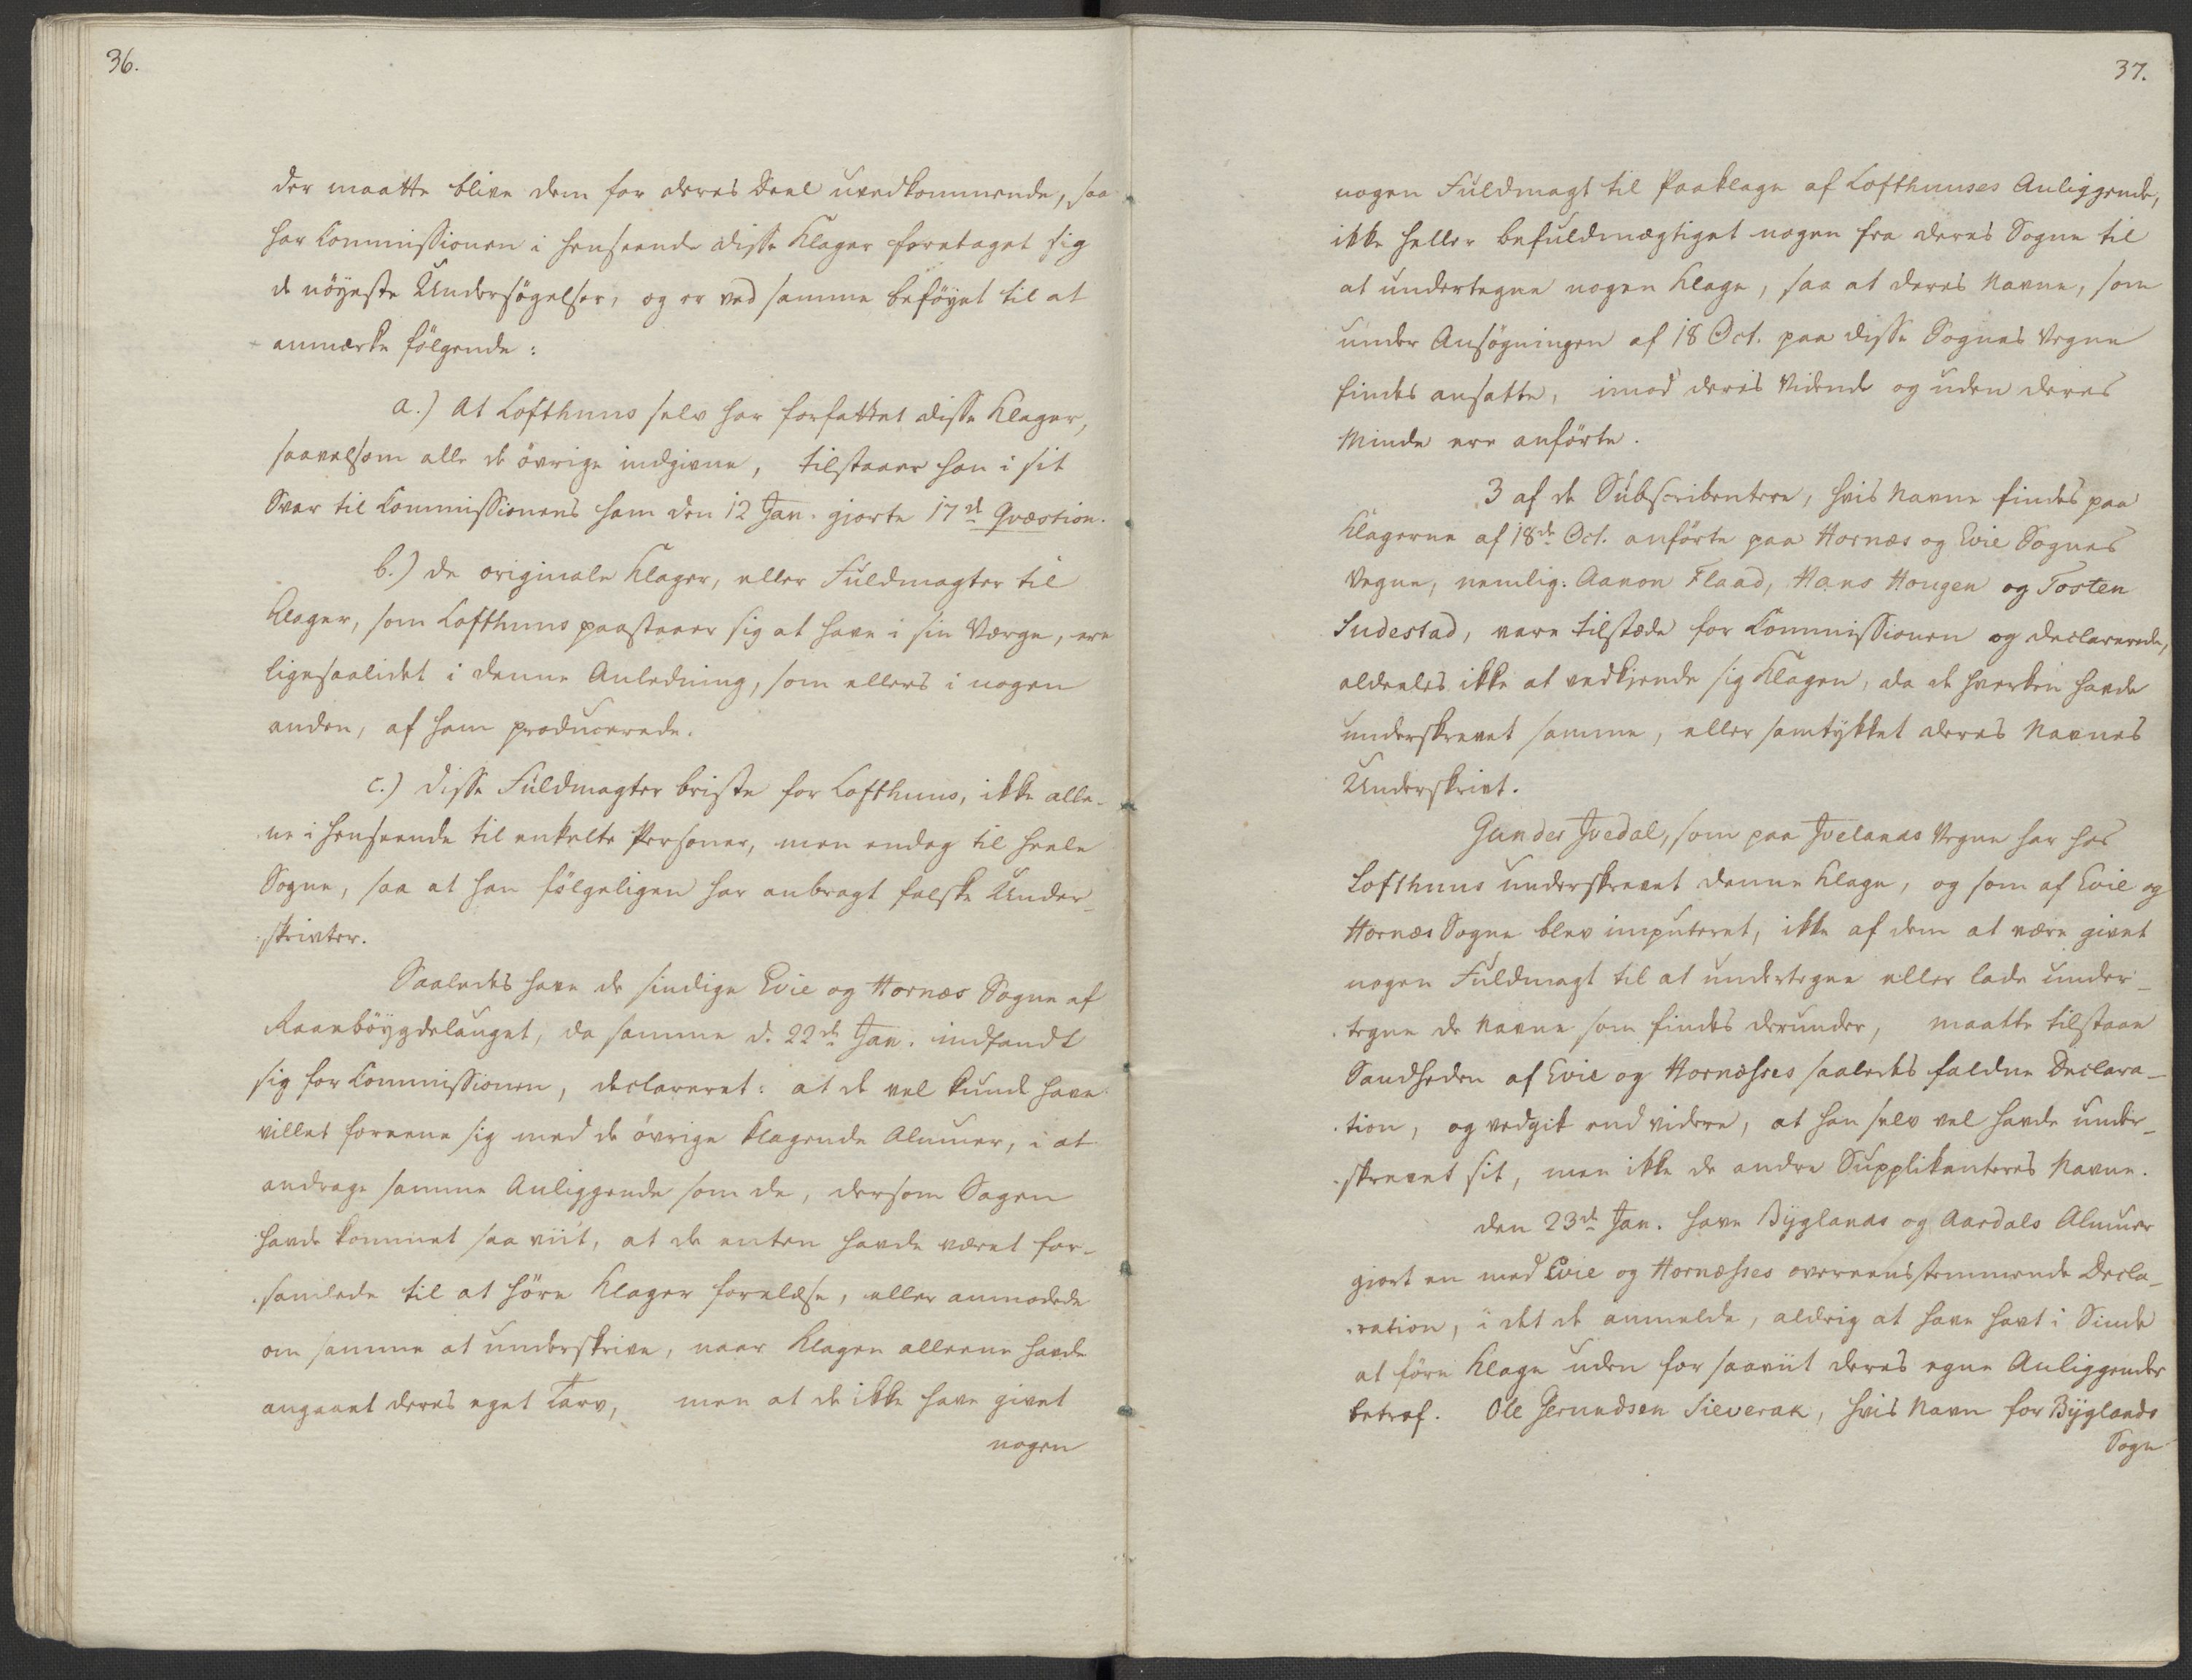 36.
der maatte blive dem for deres Deel uvedkommende, saa
har Commissionen i henseende disse Klager foretaget sig
de nöyeste Undersögelser, og er ved samme beföyet til at
anmærke fölgende:
a.) At Lofthuus selv har forfattet disse Klager,
saavelsom alle de övrige indgivne, tilstaaer han i sit
Svar til Commissionens ham den 12 Jan. giorte 17d Qvæstion.
b.) De originale Klager, eller Fuldmagter til
Klager, som Lofthuus paastaaer sig at have i sin Værge, ere
ligesaalidet i denne Anledning, som ellers i nogen
anden, af ham producerede.
c.) Disse Fuldmagter briste for Lofthuus, ikke alle-
ne i henseende til enkelte Personer, men endog til heele
Sogne, saa at han fölgeligen har anbragt falske Under-
skrivter.
Saaledes have de sindige Evie og Hornæs Sogne af
Raaeböygdelauget, da samme d. 22de Jan. indfandt
sig for Commissionen, declareret: at de vel kunde have
villet foreene sig med de övrige klagende Almuer, i at
andrage samme Anliggende som de, dersom Sagen
havde kommet saa viit, at de enten havde været for-
samlede til at höre Klager forelæse, eller anmodede
om samme at underskrive, naar Klagen alleene havde
angaaet deres eget Tarv, men at de ikke have givet
nogen
37.
nogen Fuldmagt til Paaklage af Lofthuuses Anliggende,
ikke heller befuldmægtiget nogen fra deres Sogne til
at undertegne nogen Klage, saa at deres Navne, som
under Ansögningen af 18 Oct. paa disse Sognes Vegne
findes ansatte, imod deres Vidende og uden deres
Minde ere anförte.
3 af de Subscribentere, hvis Navne findes paa
Klagerne af 18de Oct. anförte paa Hornæs og Evie Sognes
Vegne, nemlig: Aanon Flaad, Hans Hougen og Tosten
Sudestad, vare tilstæde for Commissionen og declarerede,
aldeeles ikke at vedkjende sig Klagen, da de hverken havde
underskrevet samme, eller samtykket deres Navnes
Underskrivt.
Gunder Jvedal, som paa Jvelands Vegne har hos
Lofthuus underskrevet denne Klage, og som af Evie og
Hornæs Sogne blev imputeret, ikke af dem at være givet
nogen Fuldmagt til at undertegne eller lade under-
tegne de Navne som findes derunder, maatte tilstaae
Sandheden af Evie og Hornæsses saaledes faldne Declara-
tion, og vedgik end videre, at han selv vel havde under-
skrevet sit, men ikke de andre Supplikanteres Navne.
Den 23de Jan. have Byglands og Aardals Almuer
giort en med Evie og Hornæsses overeensstemmende Decla-
ration, i det de anmelde, aldrig at have havt i Sinde
at före Klage uden for saaviit deres egne Anliggender
betraf. Ole Gerundsen Sieverak, hvis Navn for Byglands
Sogn